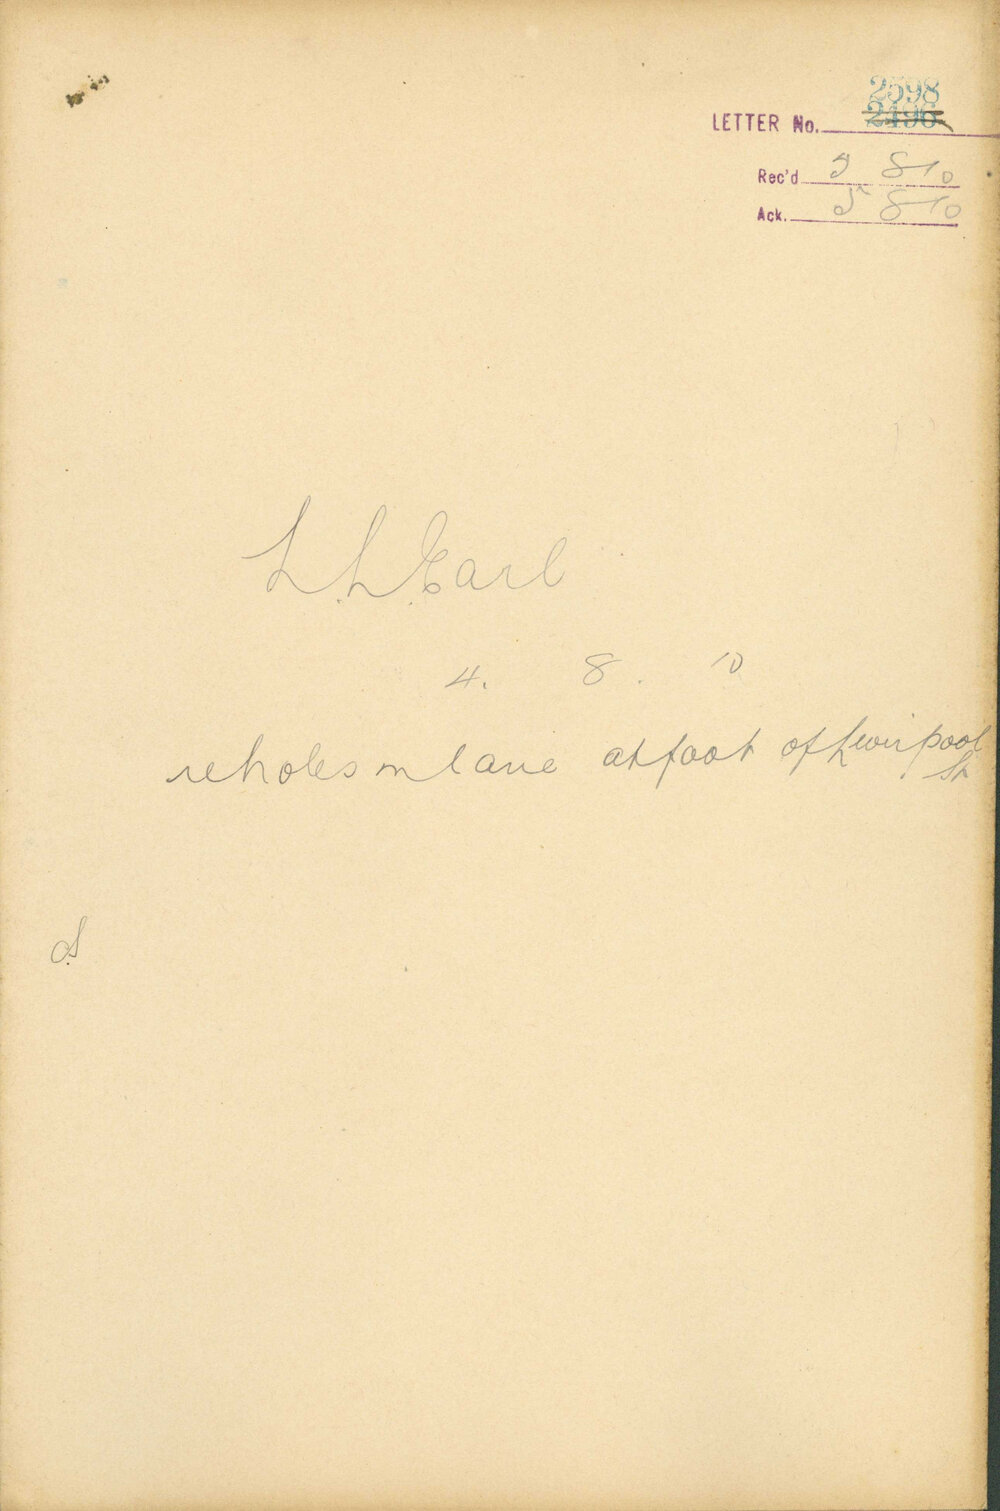 2598
LETTER No. 2496
Rec'd 5 8 10
Ack. 5 8 10
L. L. Earl
4. 8. 10
re holes in lane at foot of Liverpool
St